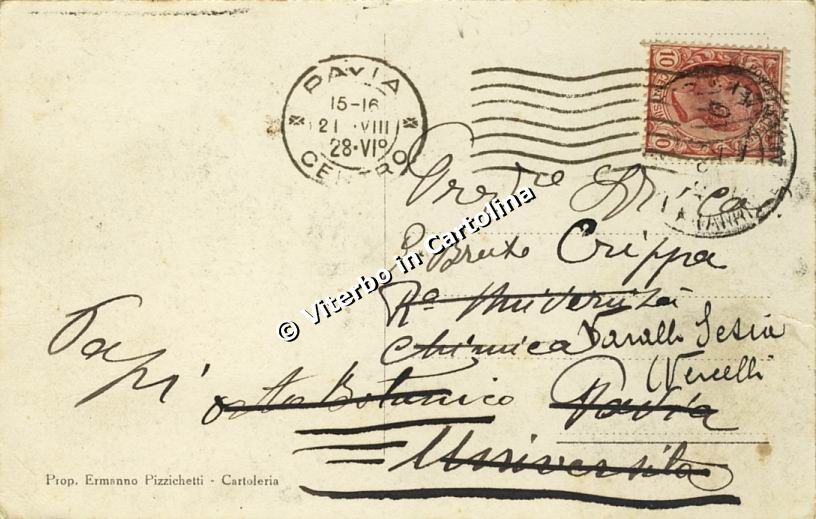 PAVIA
15-16
21 VIII
28·VIº
CENTRO
10 10
Crippa
Rª Università
Chimica Varallo Sesia
(Vercelli)
Papi
orto Botanico Pavia
Università
Prop. Ermanno Pizzichetti - Cartoleria
© Viterbo in Cartolina